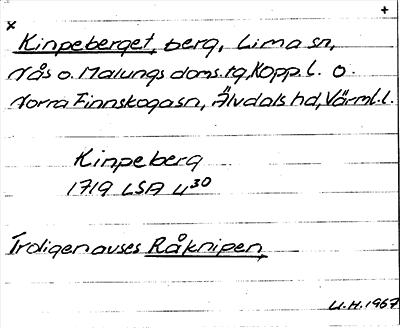 x +
Kinpeberget, berg, Lima sn,
Nås o. Malungs doms.tg, Kopp.l. o.
Norra Finnskoga sn, Älvdals hd, Värml.l.
Kinpeberg
1719 LSA U30
Troligen avses Råknipen,
U.H. 1967